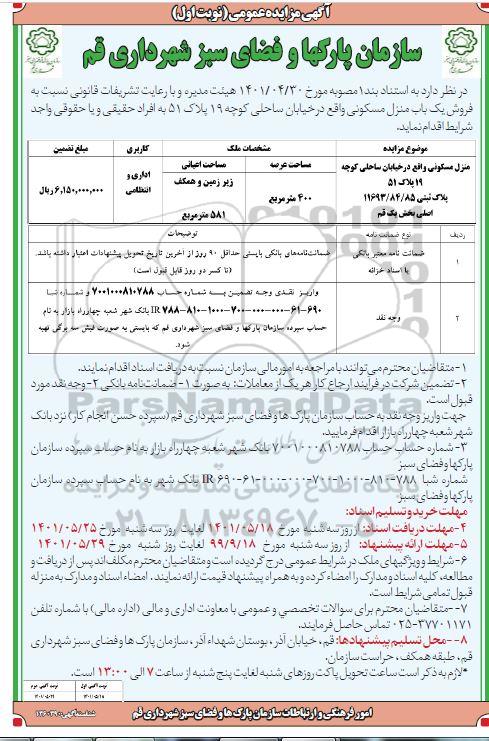 آگهی مزایده عمومی (نوبت اول)
سازمان پارکها و فضای سبز شهرداری قم
در نظر دارد به استناد بند۱مصوبه مورخ ۱۴۰۱/۰۴/۳۰ هیئت مدیره و با رعایت تشریفات قانونی نسبت به
فروش یک باب منزل مسکونی واقع درخیابان ساحلی کوچه ۱۹ پلاک ۵۱ به افراد حقیقی و یا حقوقی واجد
شرایط اقدام نماید.
موضوع مزایده مشخصات ملک کاربری مبلغ تضمین
منزل مسکونی واقع درخیابان ساحلی کوچه
۱۹پلاک ۵۱
پلاک ثبتی ۱۱۶۹۳/۸۴/۸۵
اصلی بخش یک قم
مساحت عرصه مساحت اعیانی
۴۰۰ مترمربع زیر زمین و همکف
۵۸۱ مترمربع
اداری و
انتظامی
۶,۱۵۰,۰۰۰,۰۰۰ ریال
ردیف نوع ضمانت نامه توضیحات
۱ ضمانت نامه معتبر بانکی
با اسناد خزانه
ضمانت‌نامه‌های بانکی بایستی حداقل ۹۰ روز از آخرین تاریخ تحویل پیشنهادات اعتبار داشته باشد.
(تا کسر دو روز قابل قبول است)
۲ وجه نقد
واریز نقدی وجه تضمین به شماره حساب ۷۰۰۱۰۰۰۸۱۰۷۸۸ و شماره شبا
IR ۷۸۸-۸۱۰-۱۰۰۰-۷۰۰-۰۰۰-۰۰۰-۶۱-۶۹۰ بانک شهر شعبه چهارراه بازار به نام
حساب سپرده سازمان پارکها و فضای سبز شهرداری قم که بایستی به صورت فیش سه برگی تهیه
شود.
۱-متقاضیان محترم می‌توانند با مراجعه به امور مالی سازمان نسبت به دریافت اسناد اقدام نمایند.
۲-تضمین شرکت در فرآیند ارجاع کار هر یک از معاملات: به صورت ۱- ضمانت‌نامه بانکی ۲-وجه نقد مورد
قبول است.
جهت واریز وجه نقد به حساب سازمان پارک ها و فضای سبز شهرداری قم (سپرده حسن انجام کار) نزد بانک
شهر شعبه چهارراه بازار اقدام فرمایید.
۳-شماره حساب حساب ۷۰۰۱۰۰۰۸۱۰۷۸۸ بانک شهر شعبه چهارراه بازار به نام حساب سپرده سازمان
پارکها و فضای سبز
شماره شبا IR ۶۹۰-۶۱-۰۰۰-۰۰۰-۷۰۰-۱۰۰۰-۸۱۰-۷۸۸ بانک شهر به نام حساب سپرده سازمان
پارکها و فضای سبز
مهلت خرید و تسلیم اسناد:
۴-مهلت دریافت اسناد: از روز سه شنبه مورخ ۱۴۰۱/۰۵/۱۸ لغایت روز سه‌شنبه مورخ ۱۴۰۱/۰۵/۲۵
۵-مهلت ارائه پیشنهاد: از روز سه شنبه مورخ ۹۹/۹/۱۸ لغایت روز شنبه مورخ ۱۴۰۱/۰۵/۲۹
۶-شرایط و ویژگیهای ملک در شرایط عمومی درج گردیده است و متقاضیان محترم مکلف‌اند پس از دریافت و
مطالعه، کلیه اسناد و مدارک را امضاء کرده و به همراه پیشنهاد قیمت ارائه نمایند. امضاء اسناد و مدارک به منزله
قبول تمامی شرایط است.
۷--متقاضیان محترم برای سوالات تخصصی و عمومی با معاونت اداری و مالی (اداره مالی) با شماره تلفن
۰۲۵-۳۷۷۰۱۱۷۱ تماس حاصل فرمایند.
۸--محل تسلیم پیشنهادها: قم، خیابان آذر، بوستان شهداء آذر، سازمان پارک ها و فضای سبز شهرداری
قم، طبقه همکف، حراست سازمان.
*لازم به ذکر است ساعت تحویل پاکت روزهای شنبه لغایت پنج شنبه از ساعت ۷ الی ۱۳:۰۰ است.
نوبت آگهی اول نوبت آگهی دوم
امور فرهنگی و ارتباطات سازمان پارک ها و فضای سبز شهرداری قم
ParsNamadData